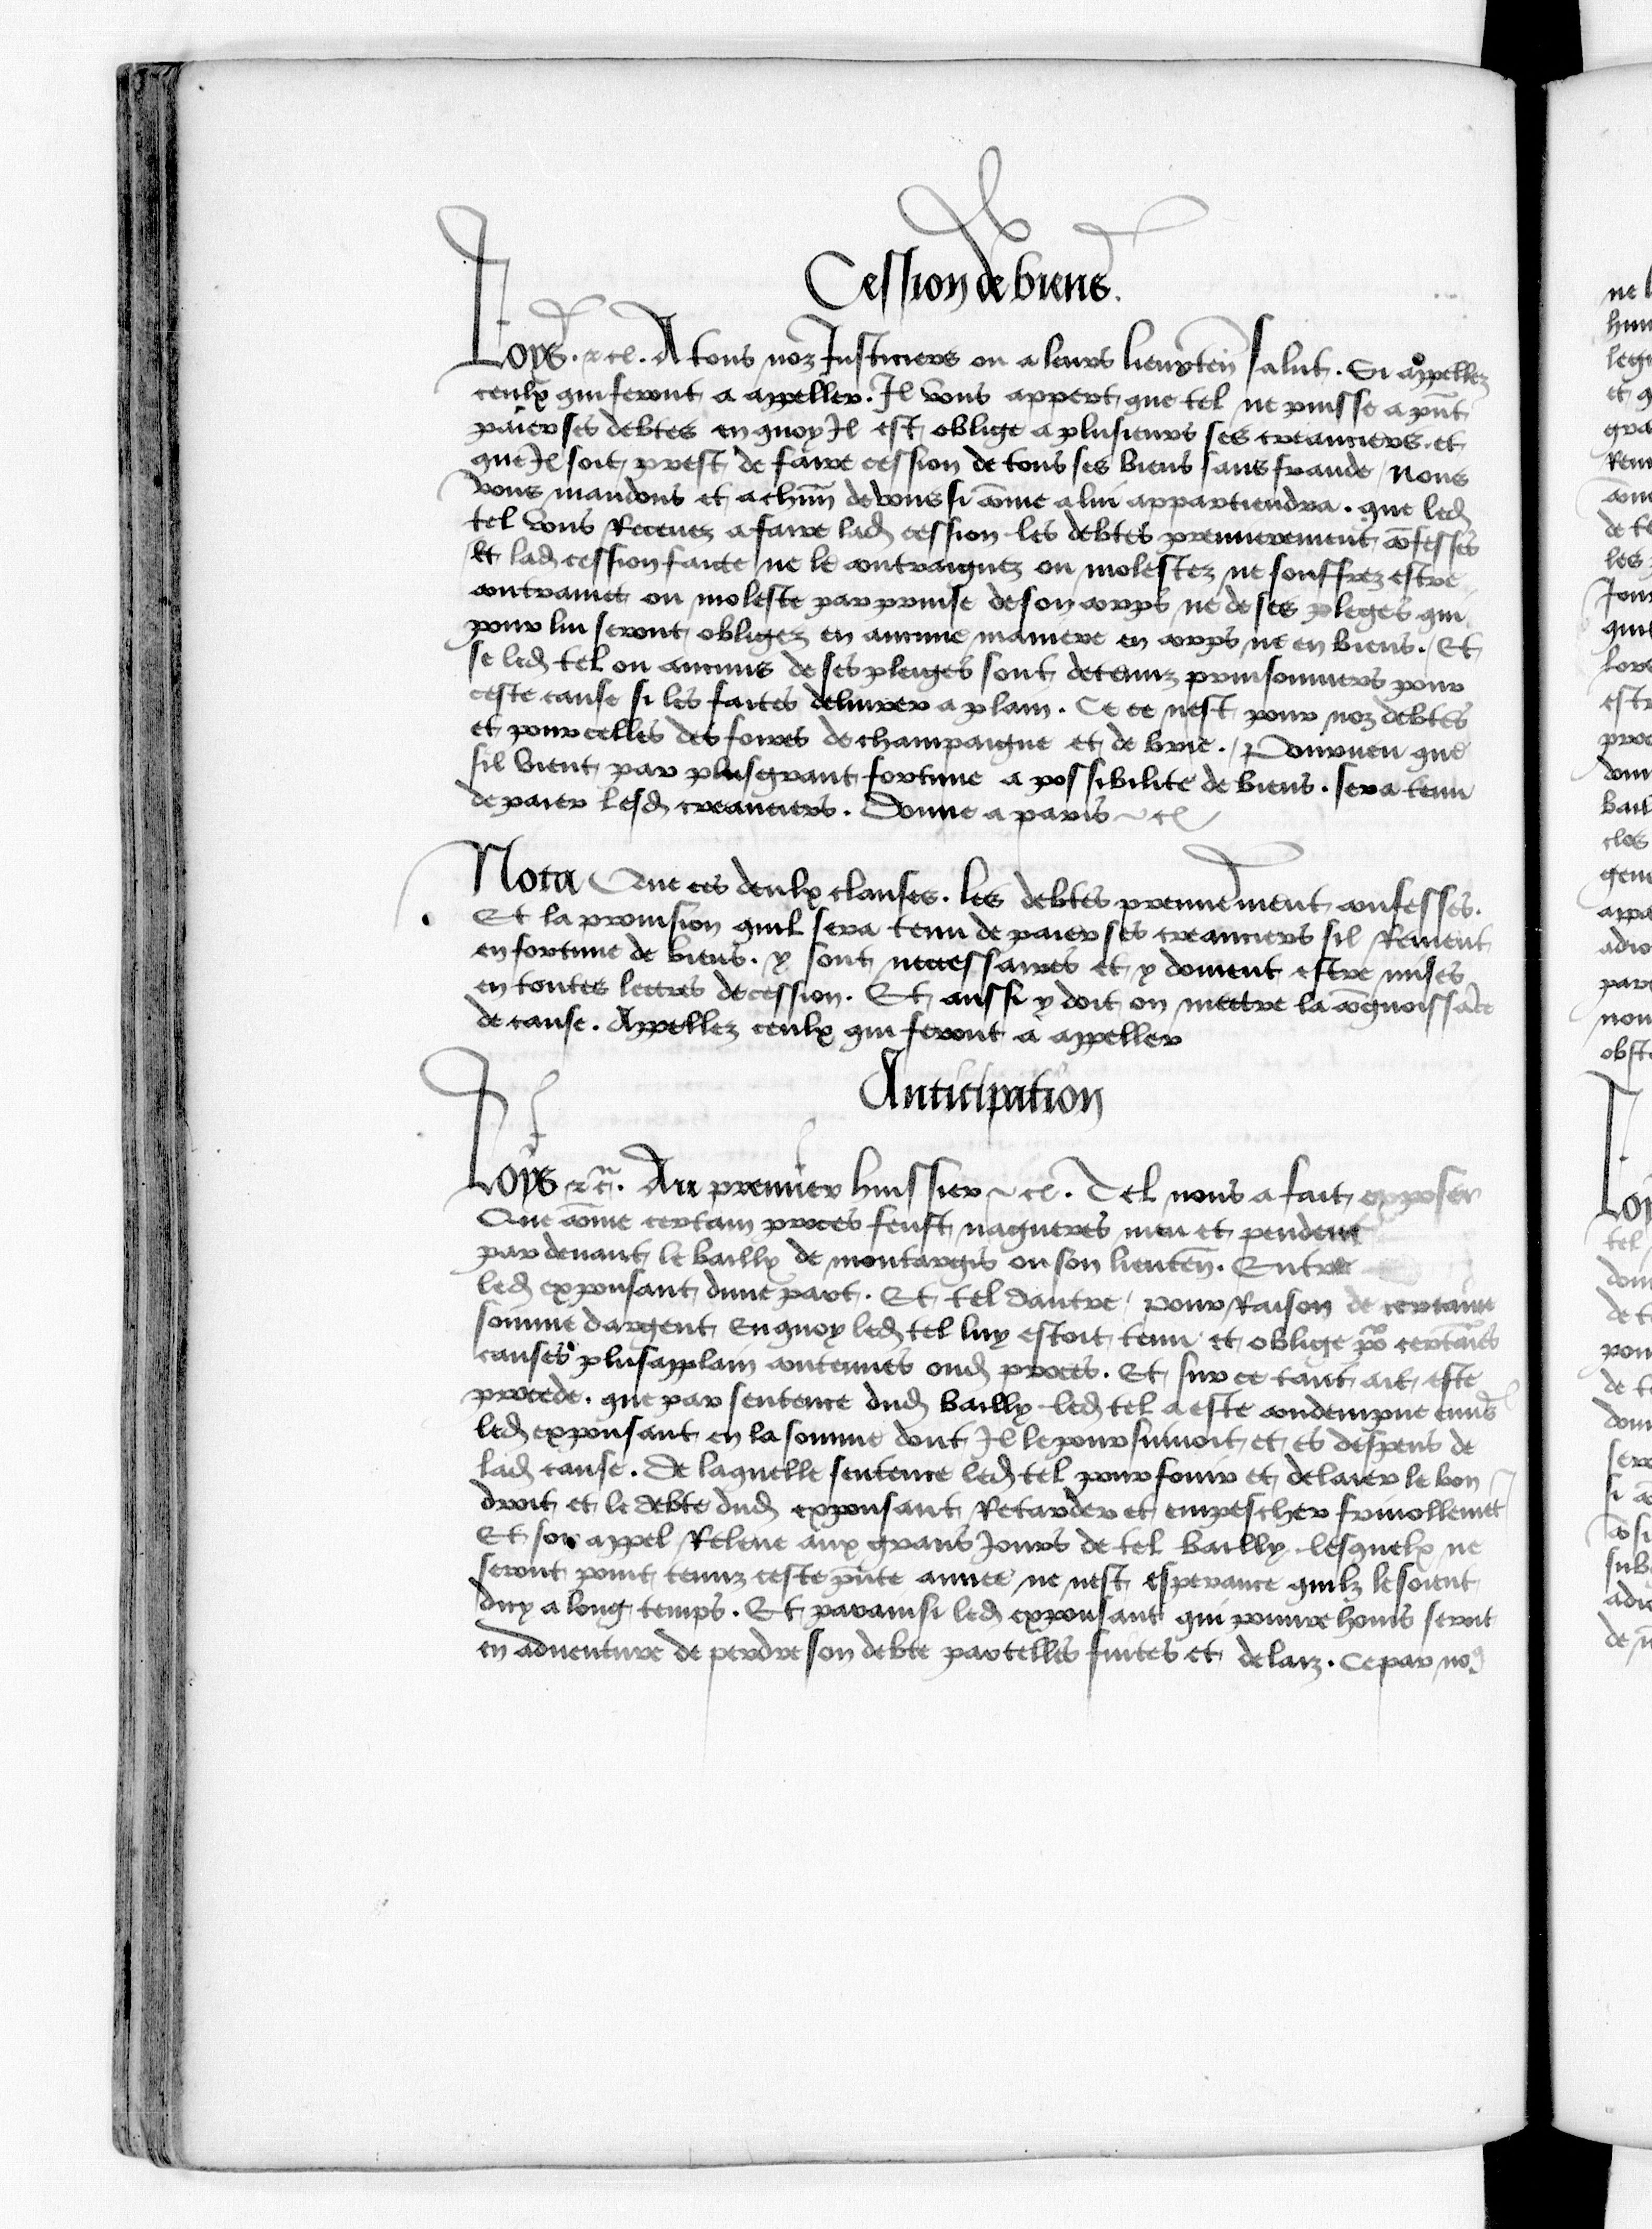 Cession de biens.
Loys. etc. A tous noz Justiciers ou a leurs lieuxten̄ salut. Si appellez
ceulx qui feront a appeller. Il vous appert que tel ne puisse a pn̄t
paier ses debtes en quoy Il est oblige a plusieurs ses creanciers. et
que Il soit prest de faire cession de tous ses biens sans fraude / Nous
vous mandons et a chūn de vous si cōme a lui appartiendra. que led
tel vous Recevez a faire lad cession les debtes premierement cōfesses
Et lad cession faicte ne le contraignez ou molestez ne souffrez estre
contraint ou moleste par prinse de son corps ne de ses pleges qui
pour lui seront obligez en aucune maniere en corps ne en biens. Et
se led tel ou aucuns de ses pleiges sont detenuz prinsonniers pour
ceste cause si les faites delivrer a plain. Ce ce nest pour noz debtes
et pour celles des foires de champaigne et de brie. Pourveu que
sil vient par plus grant fortune a possibilite de biens. sera tenu
de paier lesd creanciers. Donne a paris etc
Nota Que ces deulx clauses. les debtes premierement confesses.
Et la provision quil sera tenu de paier ses creanciers sil Revient
en fortune de biens. y sont necessaires et y doivent estre mises
en toutes lectres de cession. Et aussi y doit on mectre la cōgnoissāce
de cause. Appellez ceulx qui feront a appeller
Anticipation
Loys etc. Au premier huissier etc. Tel nous a fait exposer
Que cōme certain proces feust nagueres meu et pendent
par devant le bailly de montargis ou son lieuten̄. Entre
led exposant dune part. Et tel dautre / pour Raison de certaine
somme dargent En quoy led tel luy estoit tenu et oblige po certaīes
causes plus applain contenues oud proces. Et sur ce tant ait este
procede. que par sentence dud bailly led tel a este condempne envs
led exposant en la somme dont Il le poursuivoit et es despens de
lad cause. De laquelle sentence led tel pour fouir et delaier le bon
droit et le debte dud exposant Retarder et empescher frivollemēt
Et son appel Releve aux grans Jours de tel bailly lesquelx ne
seront point tenuz ceste pn̄te annee ne nest esperance quilz le soient
dicy a long temps. Et par ainsi led exposant qui povure homs seroit
en adventure de perdre son debte par telles fuites et delaiz. Ce par nos